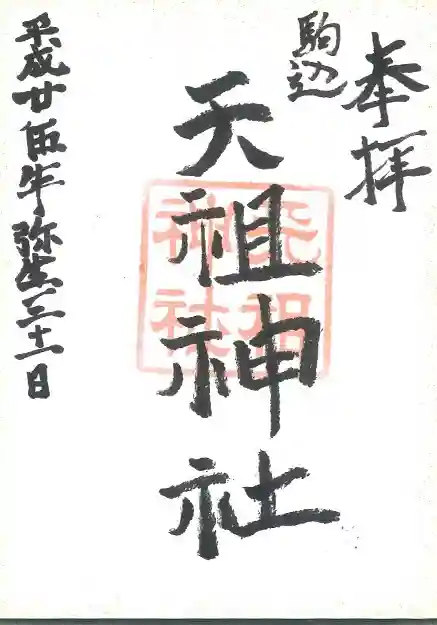 奉拝
駒込
天祖神社
天祖
神社
平成廿伍年弥生三十一日